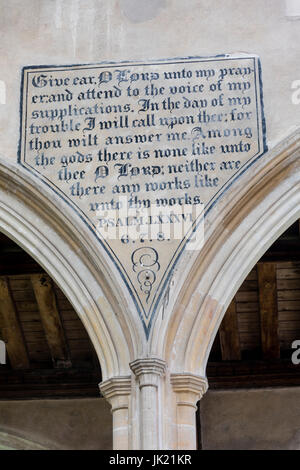 Give ear, O Lord unto my pray-
er: and attend to the voice of my
supplications. In the day of my
trouble I will call upon thee; for
thou wilt answer me. Among
the gods there is none like unto
thee O Lord; neither are
there any works like
unto thy works.
PSALM. LXXXVI.
6. 7. 8.
a
alamy
Image ID: JK21KR
www.alamy.com